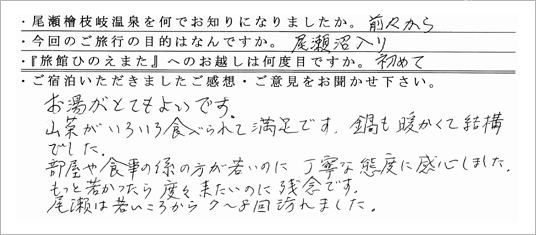 ・尾瀬檜枝岐温泉を何でお知りになりましたか。 前々から
・今回のご旅行の目的はなんですか。 尾瀬沼入り
・『旅館ひのえまた』へのお越しは何度目ですか。 初めて
・ご宿泊いただきましたご感想・ご意見をお聞かせ下さい。
お湯がとてもよいです。
山菜がいろいろ食べられて満足です。鍋も暖かくて結構
でした。
部屋や食事の係の方が若いのに丁寧な態度に感心しました。
もっと若かったら度々来たいのに残念です。
尾瀬は若いころから7〜8回訪れました。